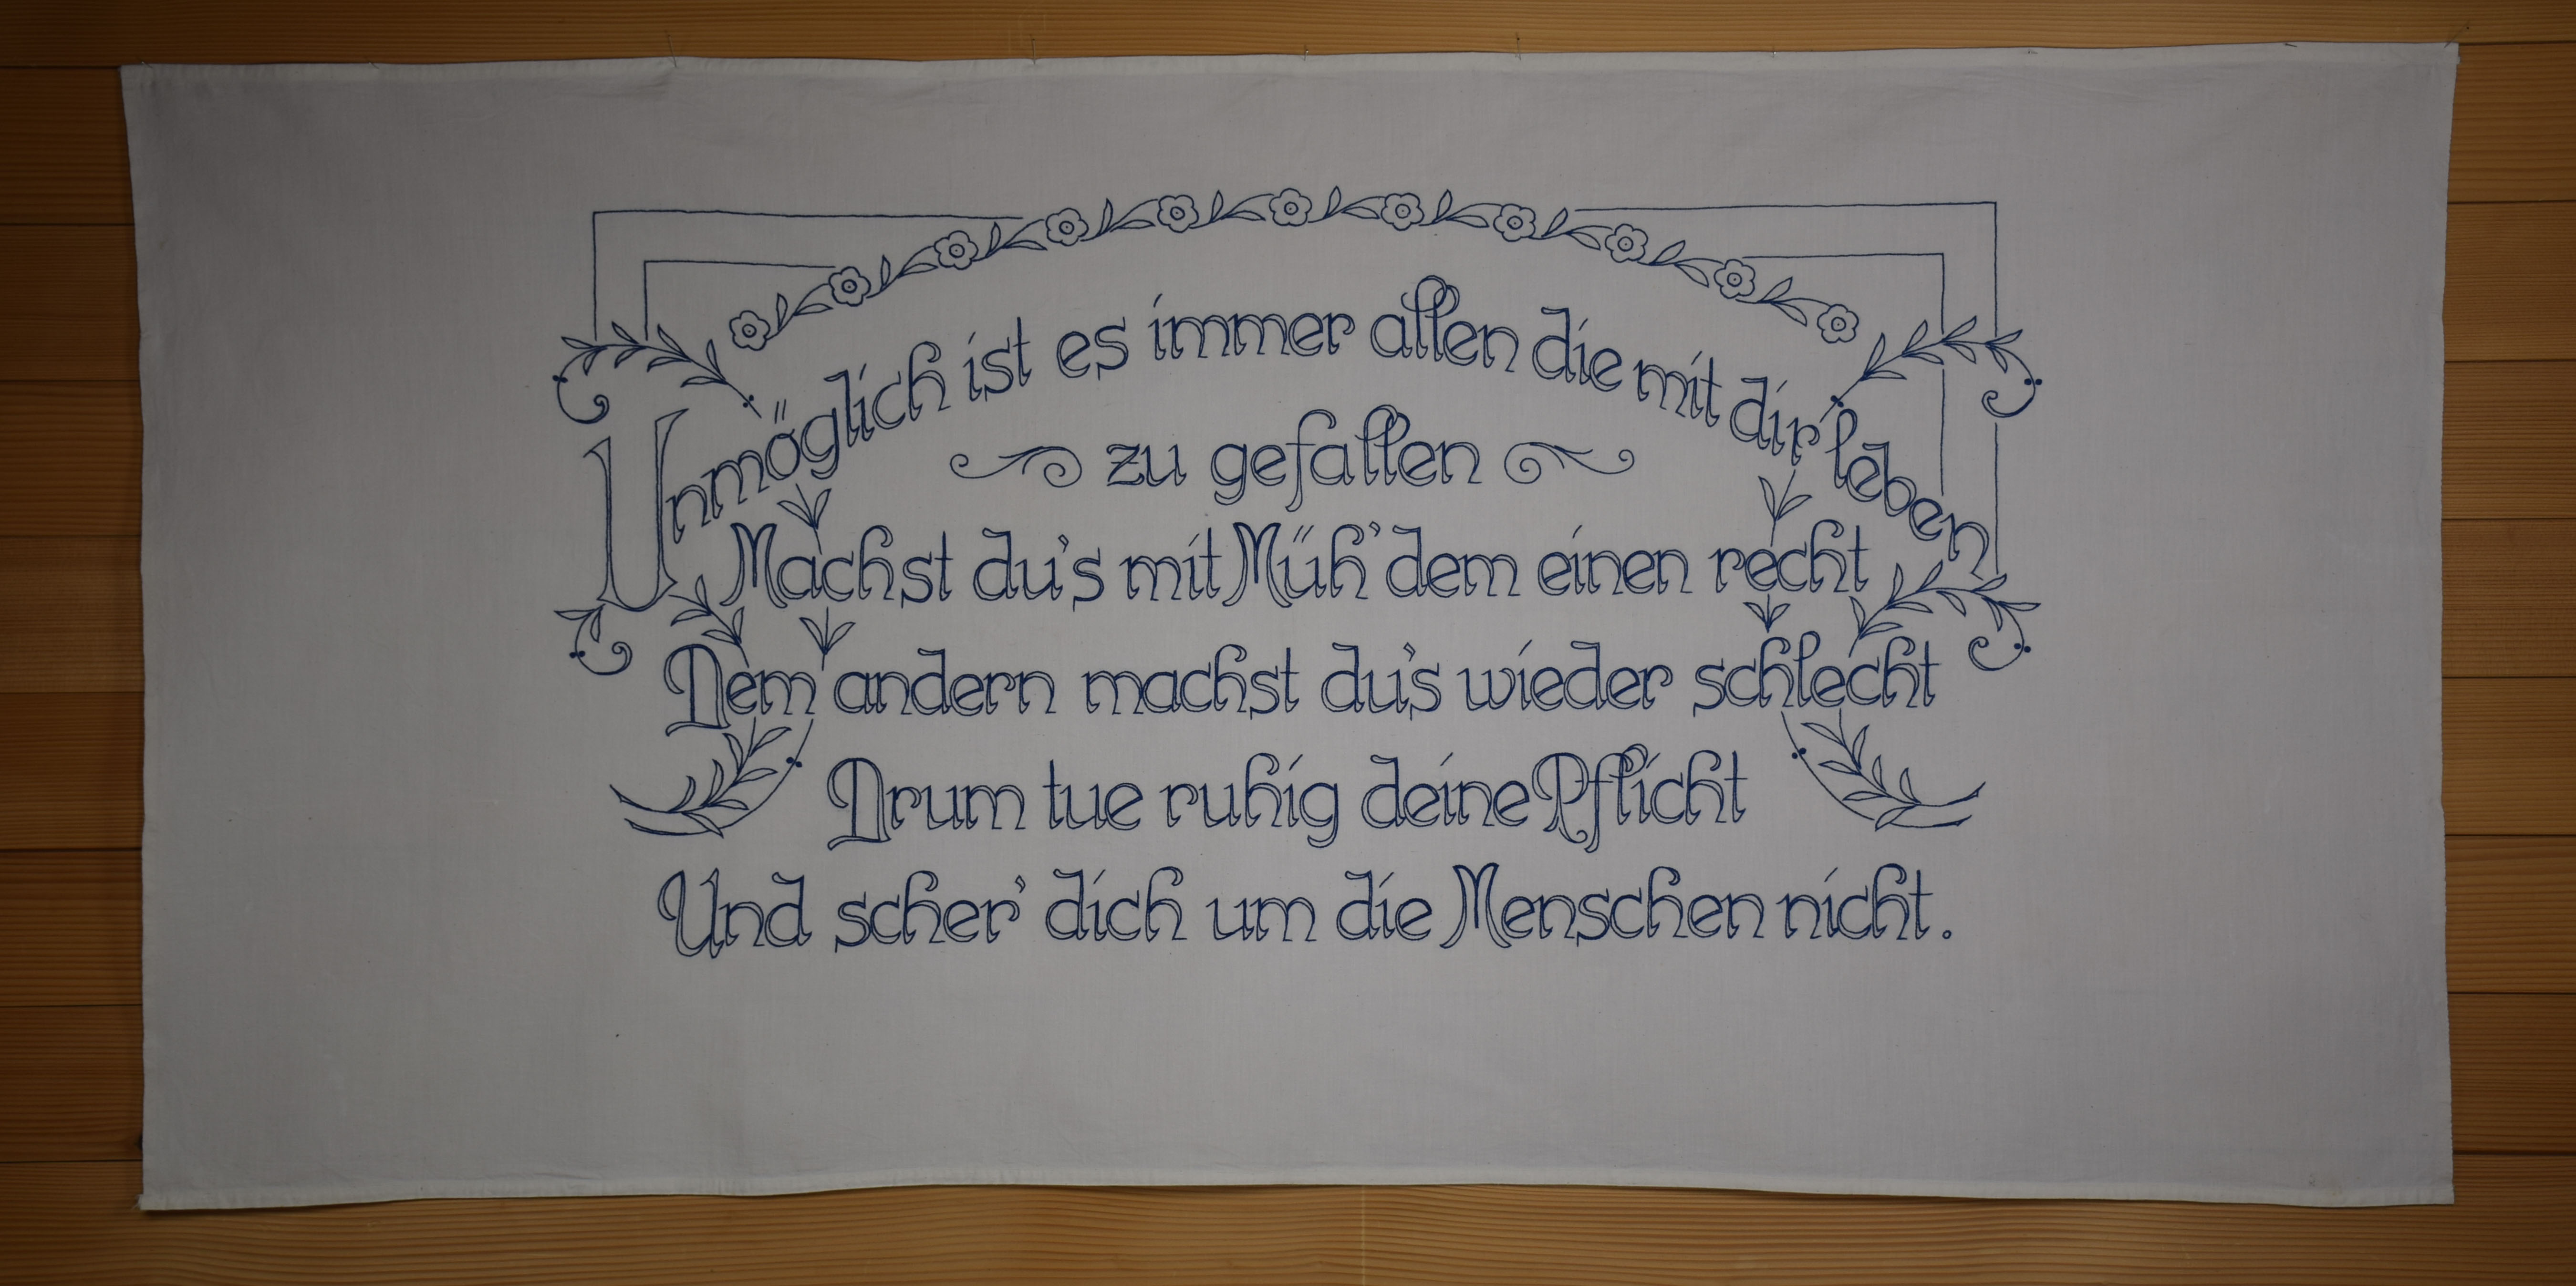 Unmöglich ist es immer allen die mit dir leben
zu gefallen
Machst du's mit Müh' dem einen recht
Dem andern machst du's wieder schlecht
Drum tue ruhig deine Pflicht
Und scher' dich um die Menschen nicht.